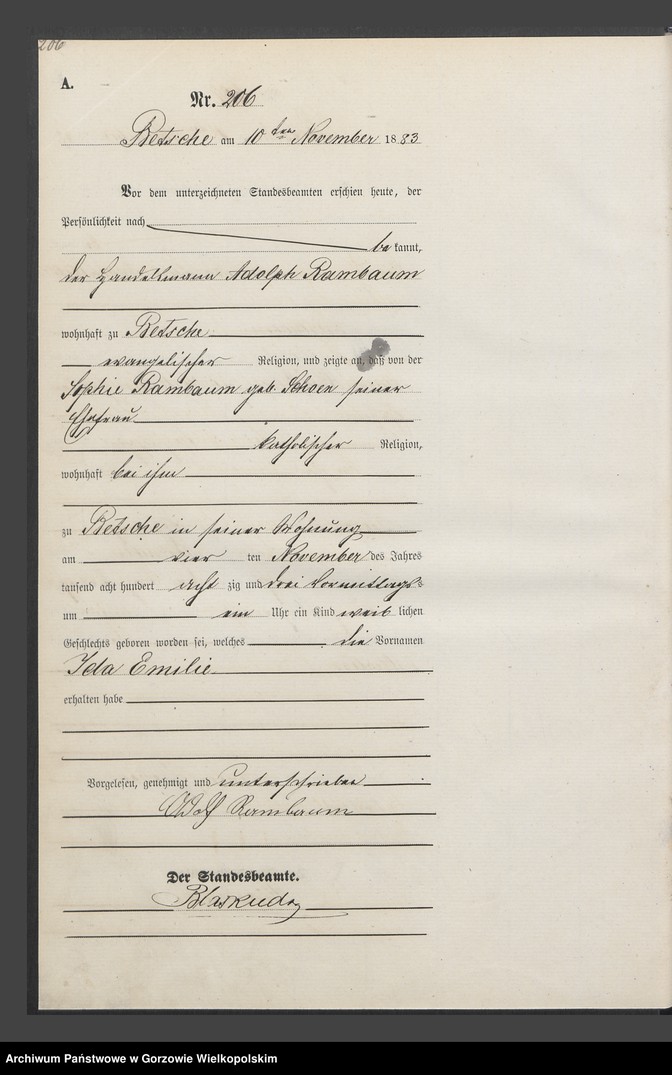 206
A.
Nr. 206
Betsche am 10ten November 1883
Vor dem unterzeichneten Standesbeamten erschien heute, der
Persönlichkeit nach
bekannt,
der Handelsmann Adolph Rambaum
wohnhaft zu Betsche
evangelischer Religion, und zeigte an, daß von der
Sophie Rambaum geb. Schoen seiner
Ehefrau
katholischer Religion,
wohnhaft bei ihm
zu Betsche in seiner Wohnung
am vier ten November des Jahres
tausend acht hundert acht zig und drei Vormittags
um ein Uhr ein Kind weib lichen
Geschlechts geboren worden sei, welches die Vornamen
Ida Emilie
erhalten habe
Vorgelesen, genehmigt und unterschrieben
Adolf Rambaum
Der Standesbeamte.
Archiwum Państwowe w Gorzowie Wielkopolskim